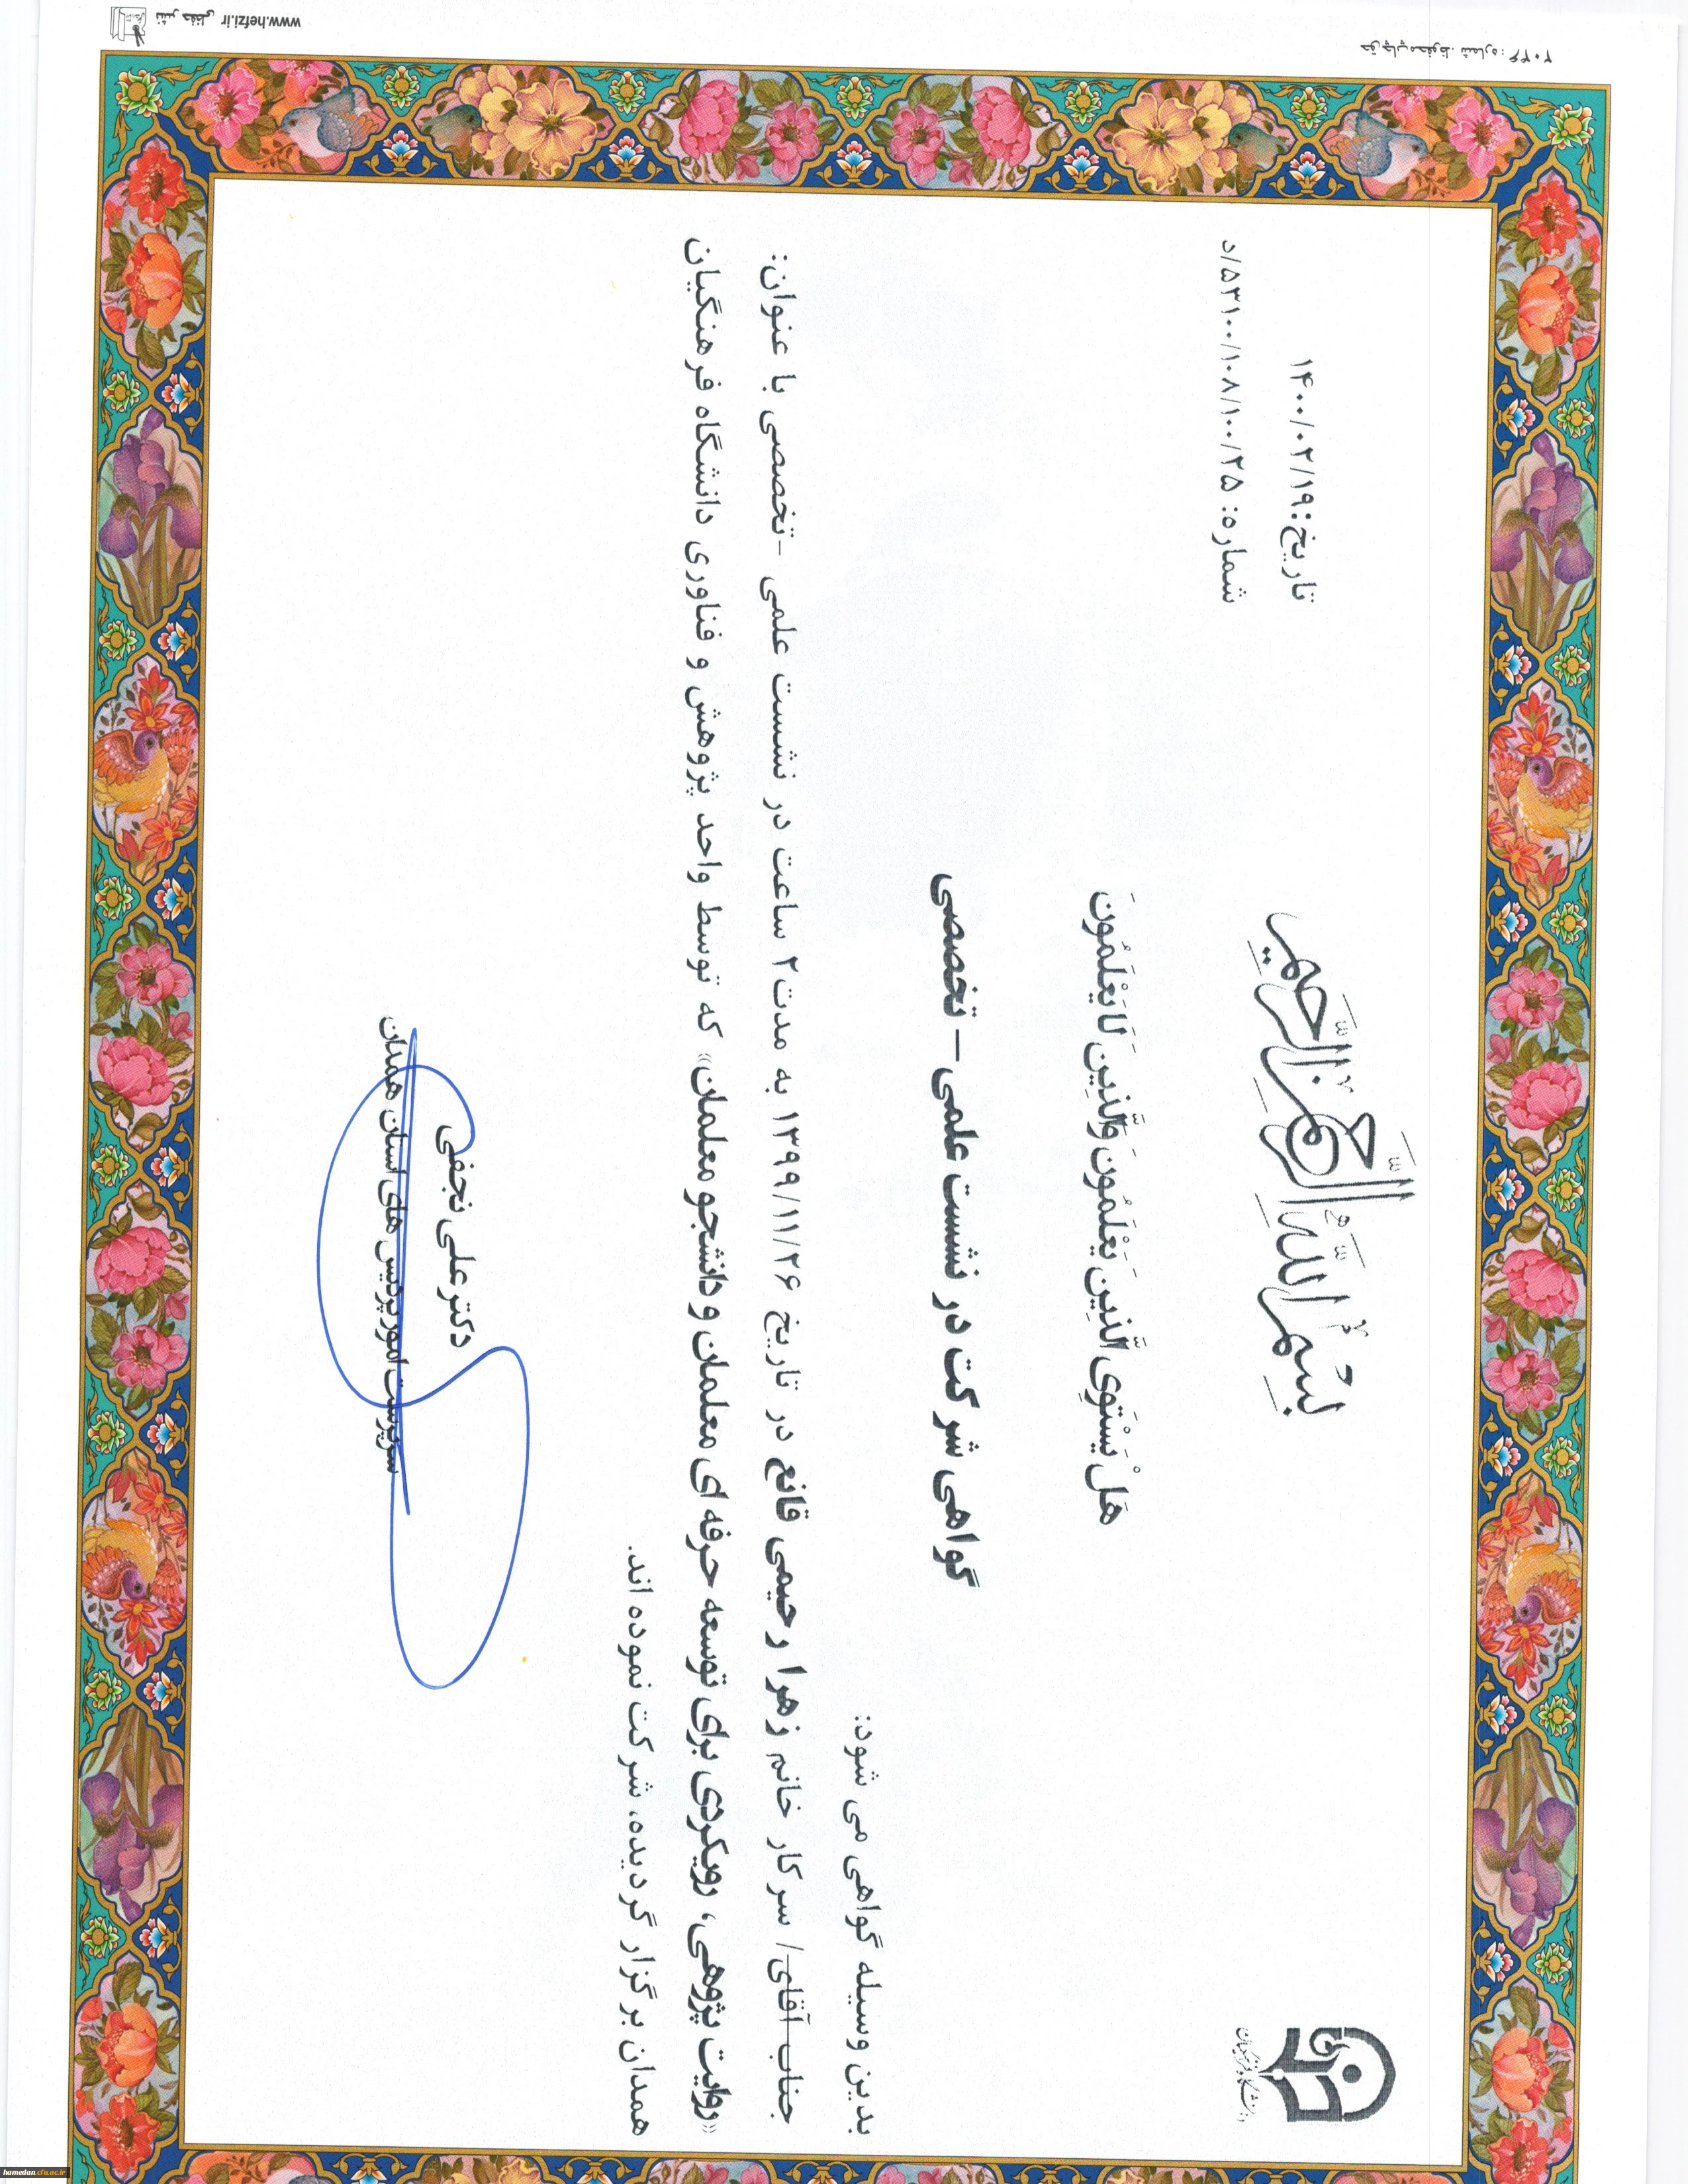 بِسْمِ اللَّهِ الرَّحْمَنِ الرَّحِیمِ
تاریخ: ۱۴۰۰/۰۲/۱۹
شماره: ۵۳۱۰۰/۱۰۸/۱۰۰/۲۵/د
دانشگاه فرهنگیان
هَلْ یَسْتَوِی الَّذِینَ یَعْلَمُونَ وَالَّذِینَ لَا یَعْلَمُونَ
گواهی شرکت در نشست علمی – تخصصی
بدین وسیله گواهی می شود:
جناب آقای/ سرکار خانم زهرا رحیمی قانع در تاریخ ۱۳۹۹/۱۱/۲۶ به مدت ۲ ساعت در نشست علمی -تخصصی با عنوان:
«روایت پژوهی، رویکردی برای توسعه حرفه ای معلمان و دانشجو معلمان» که توسط واحد پژوهش و فناوری دانشگاه فرهنگیان
همدان برگزار گردیده، شرکت نموده اند.
دکتر علی نجفی
سرپرست امور پردیس های استان همدان
حق چاپ محفوظ. شماره: ۲۰۴۶
نشر حفظی www.hefzi.ir
hamedan.cfu.ac.ir